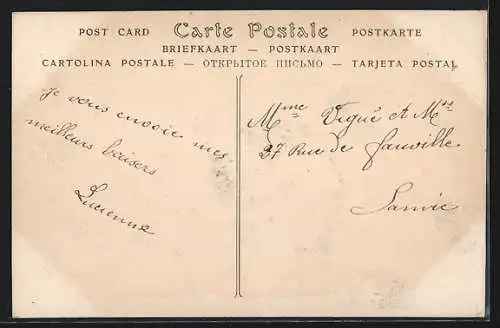 POST CARD Carte Postale POSTKARTE
BRIEFKAART — POSTKAART
CARTOLINA POSTALE — ОТКРЫТОЕ ПИСЬМО — TARJETA POSTAL
Je vous envoie mes
meilleurs baisers
Lucienne
Mme Vigué et
37 Rue de